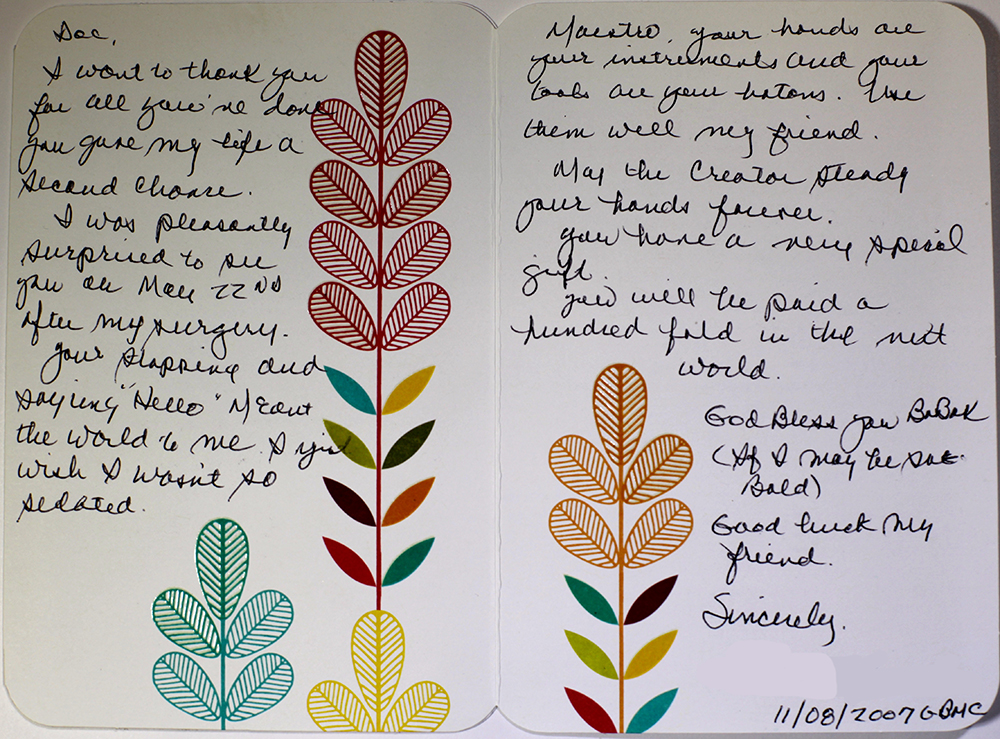 Doc,
I want to thank you
for all you've done
you gave my life a
second chance.
I was pleasantly
surprised to see
you on May 22ND
after my surgery.
your stopping and
saying "Hello" Meant
the world to me. I just
wish I wasn't so
sedated.
Maestro, your hands are
your instruments and your
tools are your batons. Use
them well my friend.
May the Creator steady
your hands forever.
you have a very special
gift.
you will be paid a
hundred fold in the next
world.
God Bless you BoBaK
(If I may be so
Bold)
Good luck my
friend.
Sincerely,
11/08/2007 GBMC